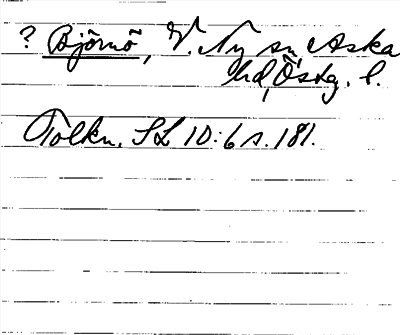 ? Björnö, V. Ny sn Aska
hd, Östg. l.
Tolkn. SL 10:6 s. 181.